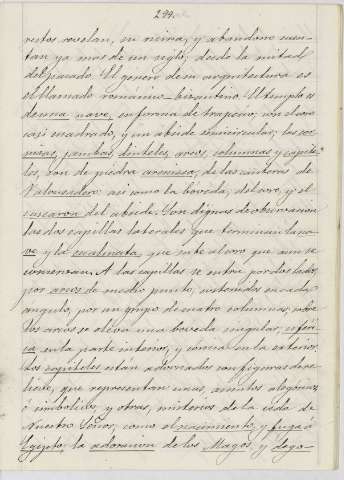 299.
restos revelan, su reirva, y abandono cuen-
tan ya mas de un siglo, desde la mitad
del pasado. El genero de su arquitectura es
el llamado románico-bizantino. El templo es
de una nave, en forma de trapecio, con el coro
casi cuadrado, y un abside semicircular; las cor-
nisas, jambas, linteles, arcos, columnas y capite-
les, son de piedra arenisca, de las canteras de
Valcuadero; asi como la boveda, del coro, y el
cascaron del abside. Son dignas de observacion
las dos capillas laterales que terminan la na-
ve y la escalinata, que sube al coro que aun se
conservan. A las capillas se entra por dos lados,
por arcos de medio punto, sostenidos en cada
angulo, por un grupo de cuatro columnas; sobre
los arcos se eleva una boveda singular, esferi-
ca en la parte interior, y cónica en la exterior.
Los capiteles estan adornados con figuras de re-
lieve, que representan unas, asuntos alegoricos
ó simbolicos, y otras, misterios de la vida de
Nuestro Señor; como el nacimiento, y fuga á
Egipto, la adoracion de los Magos, y dego-